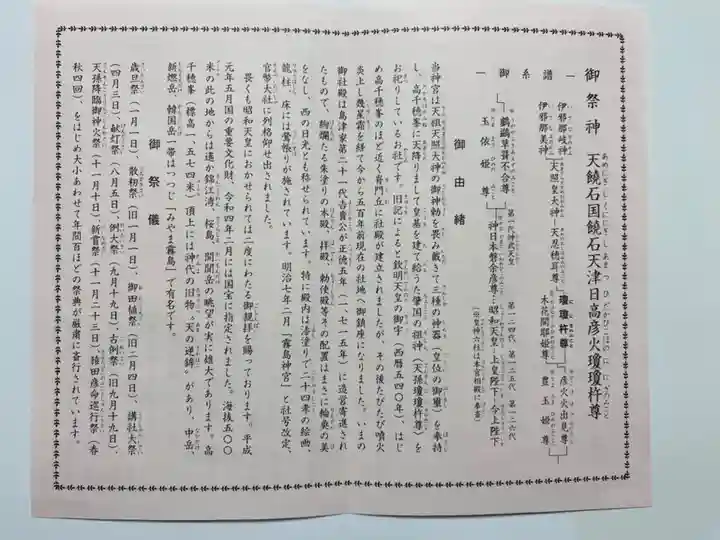 御祭神　天饒石国饒石天津日高彦火瓊瓊杵尊
あめにぎしくににぎしあまつひだかひこほのににぎのみこと
―御系譜―
伊邪那岐神
伊邪那美神
天照皇大神―天忍穂耳尊
瓊瓊杵尊
木花開耶姫尊
彦火火出見尊
豊玉姫尊
鸕鶿草葺不合尊
玉依姫尊
第一代神武天皇
神日本磐余彦尊…
第一二四代
昭和天皇
第一二五代
上皇陛下
第一二六代
今上陛下
（※皇神六柱は本宮相殿に奉斎）
御由緒
当神宮は天祖天照大神の御神勅を畏み戴きて三種の神器（皇位の御璽）を奉持
し、高千穂峯に天降りまして皇基を建て給うた肇国の祖神（天孫瓊瓊杵尊）を
お祀りしているお社です。旧記によると欽明天皇の御宇（西暦五四〇年）、はじ
め高千穂峯のほど近く脊門丘に社殿が建立されましたが、その後たびたび噴火
炎上し幾星霜を経て今から五百年前現在の社地へ御鎮座になりました。いまの
御社殿は島津家第二十一代吉貴公が正徳五年（一、七一五年）に造営寄進され
たもので、絢爛たる朱塗りの本殿、拝殿、勅使殿等その配置はまさに輪奐の美
をなし、西の日光とも称せられています。特に殿内は漆塗りで二十四孝の絵画
龍柱、床には鴬張りが施されています。明治七年二月「霧島神宮」と社号改定、
官幣大社に列格仰せ出されました。
畏くも昭和天皇におかせられては二度にわたる御親拝を賜っております。平成
元年五月国の重要文化財、令和四年二月には国宝に指定されました。海抜五〇〇
米の此の地からは遙か錦江湾、桜島、開聞岳の眺望が実に雄大であります。高
千穂峯（標高一、五七四米）頂上には神代の旧物〝天の逆鉾〟があり、中岳、
新燃岳、韓国岳一帯はつつじ「みやま霧島」で有名です。
御祭儀
歳旦祭（一月一日）、散籾祭（旧一月一日）、御田植祭（旧二月四日）、講社大祭
（四月三日）、献灯祭（八月五日）、例大祭（九月十九日）、古例祭（旧九月十九日）、
天孫降臨御神火祭（十一月十日）、新嘗祭（十一月二十三日）、猿田彦命巡行祭（春
秋四回）、をはじめ大小あわせて年間百ほどの祭典が厳粛に斎行されています。